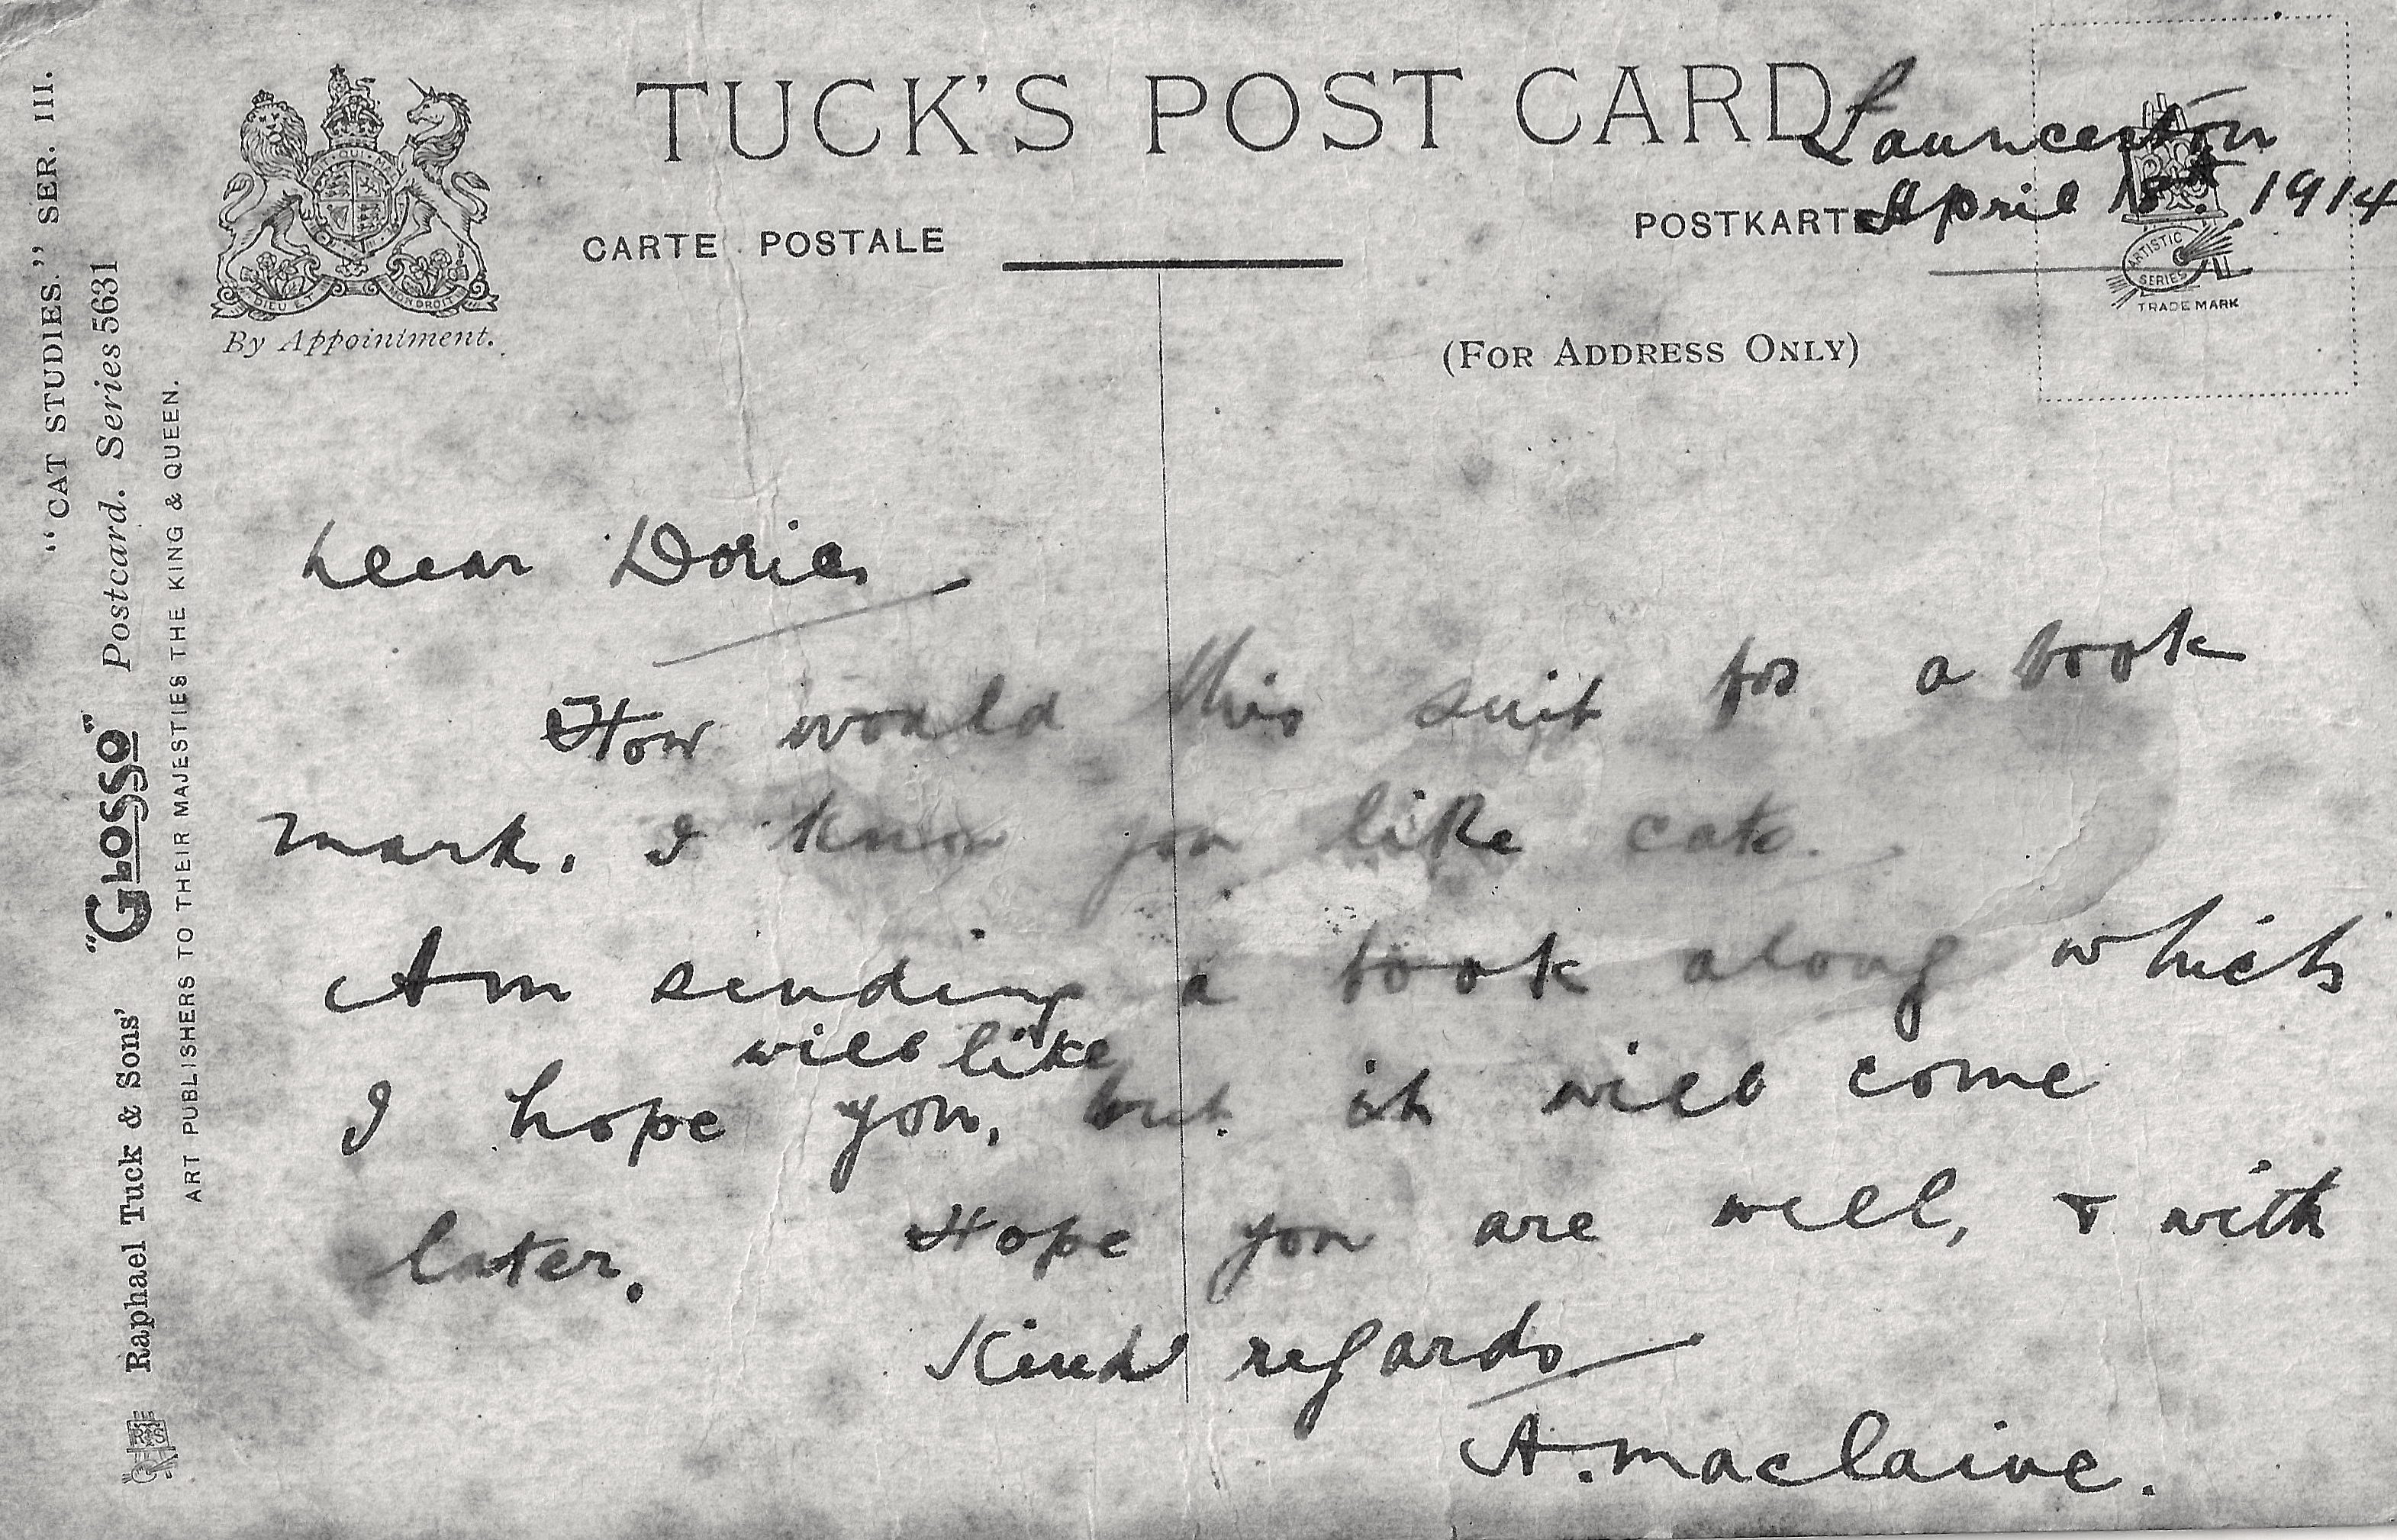 TUCK'S POST CARD
CARTE POSTALE
POSTKARTE
Launceston
April 1914
By Appointment.
DIEU ET MON DROIT
ARTISTIC SERIES
TRADE MARK
(FOR ADDRESS ONLY)
"CAT STUDIES." SER. III.
Raphael Tuck & Sons' "GLOSSO" Postcard. Series 5631
ART PUBLISHERS TO THEIR MAJESTIES THE KING & QUEEN.
Dear Doris
How would this suit for a book
mark. I know you like cats.
Am sending a book along which
will like
I hope you, but it will come
later. Hope you are well, & with
Kind regards
A. Maclaine.